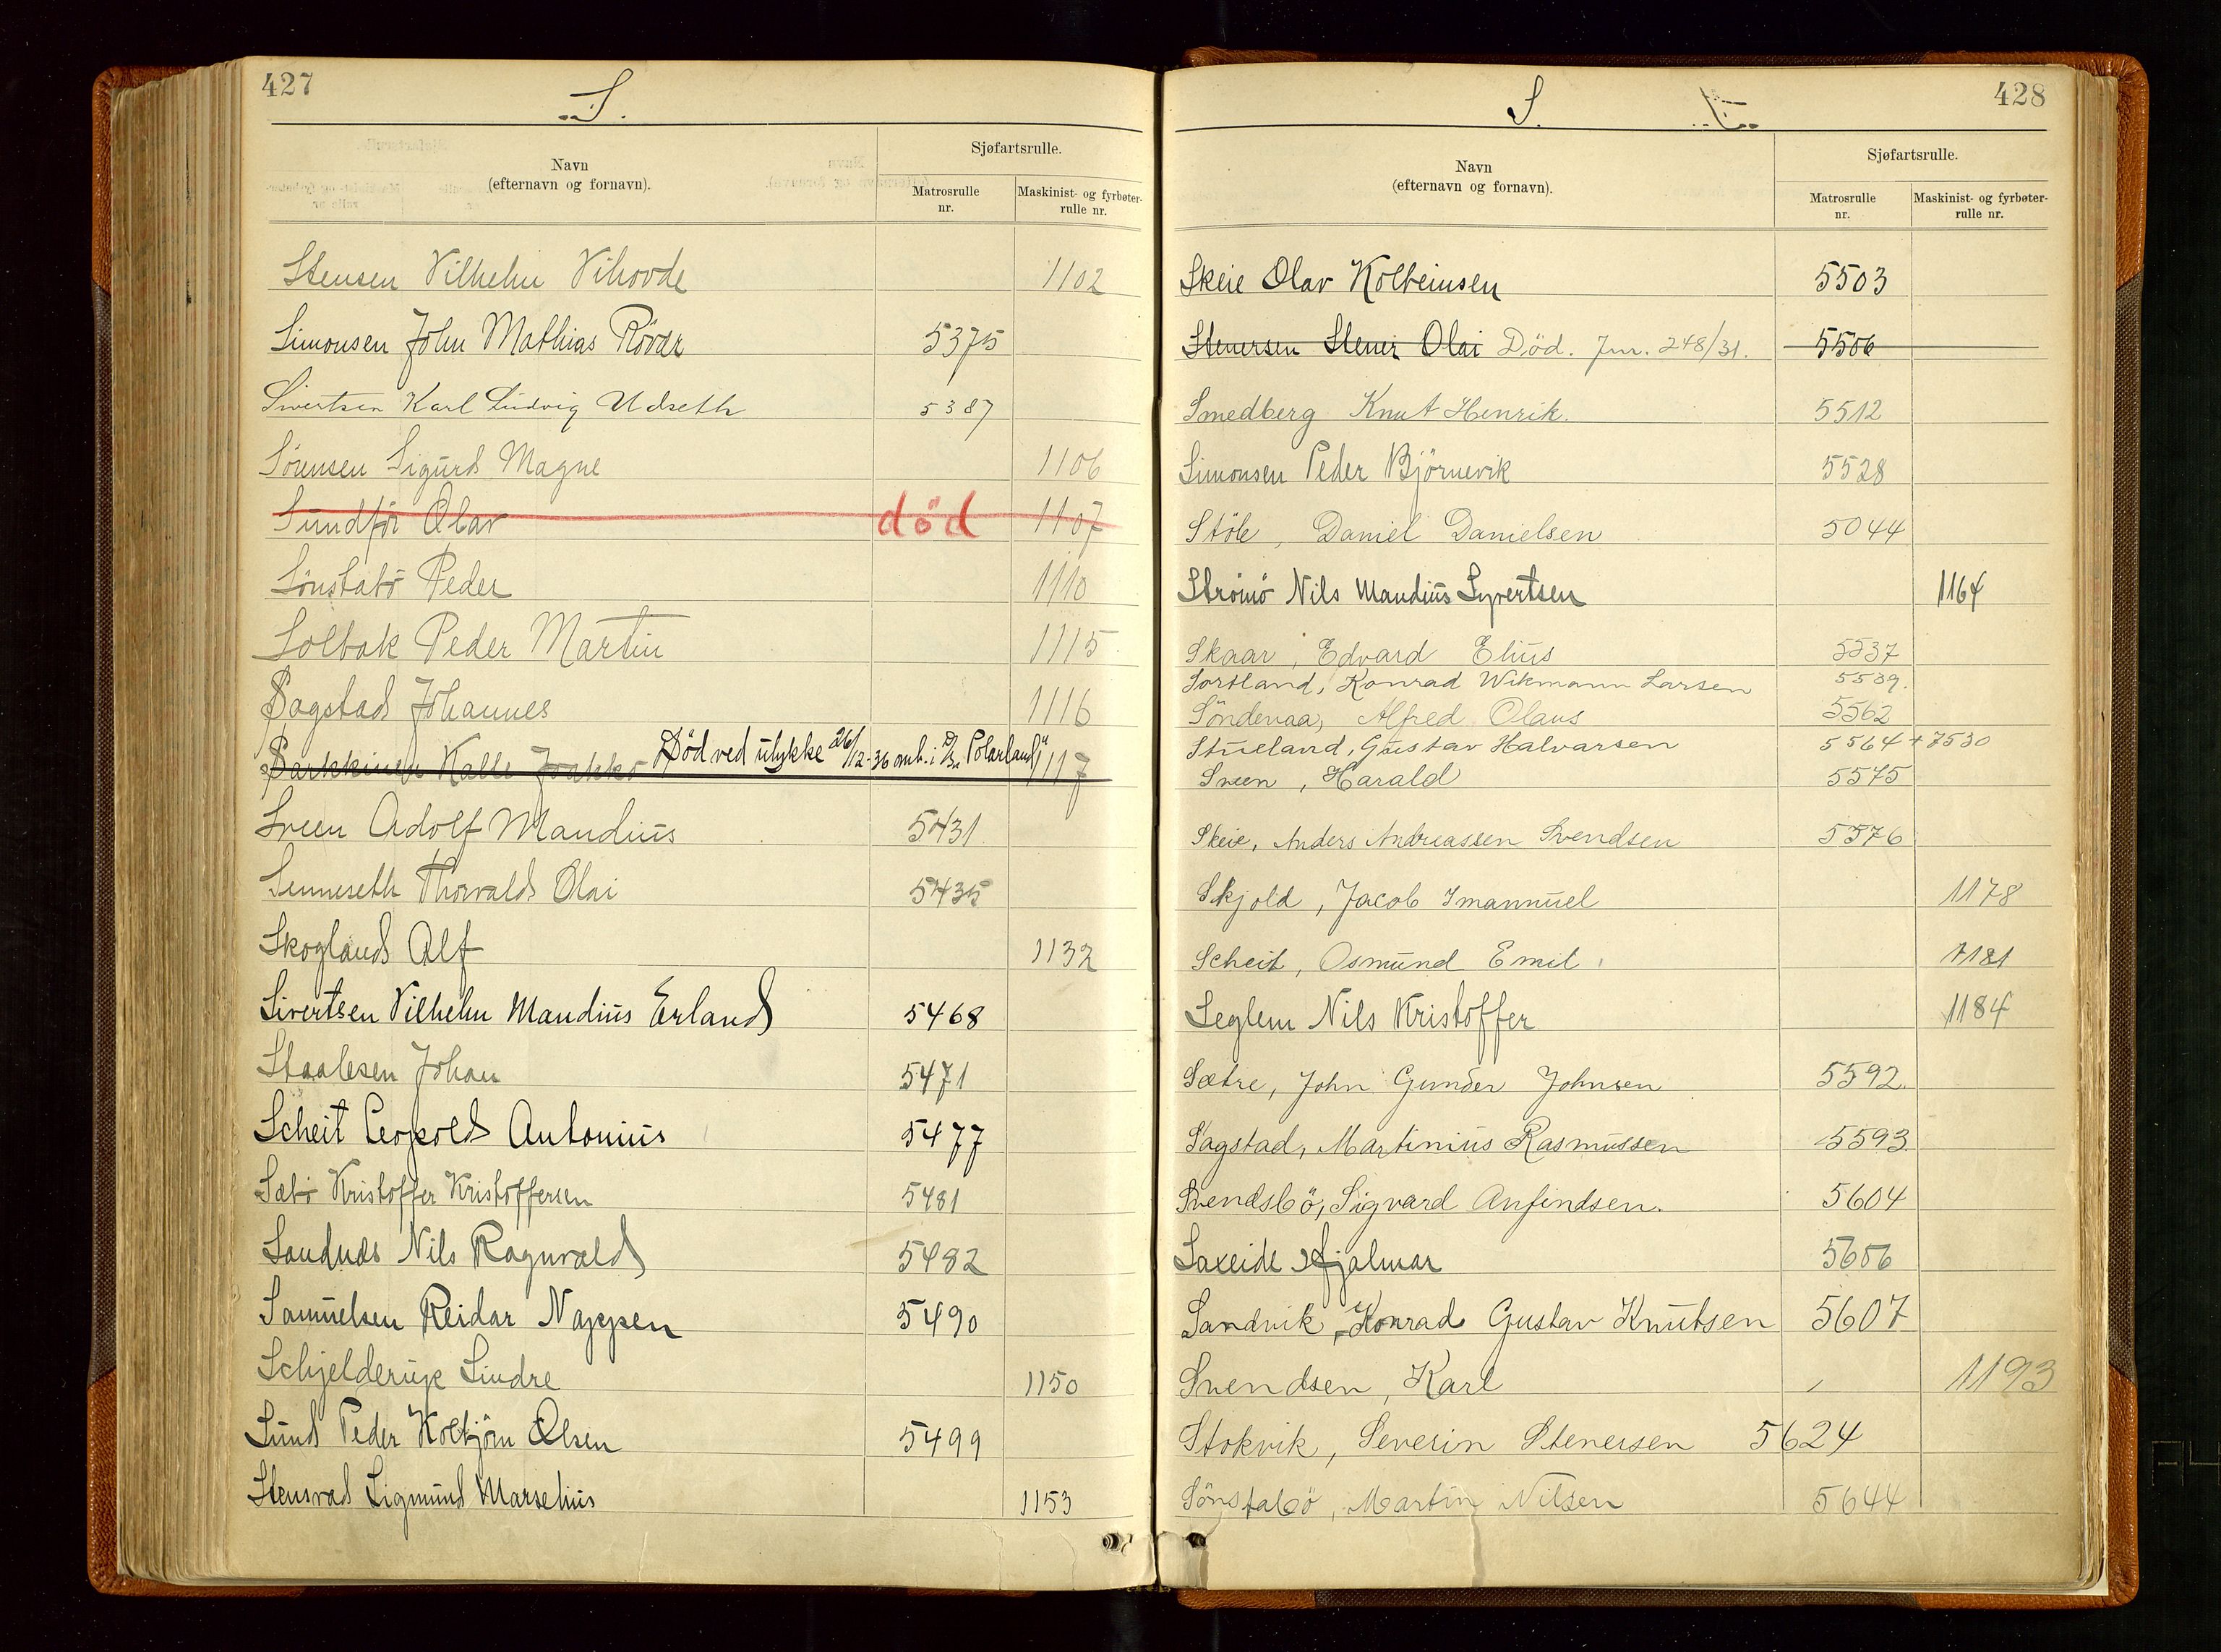 427
S.
Navn
(efternavn og fornavn).
Sjøfartsrulle.
Matrosrulle
nr.
Maskinist- og fyrbøter-
rulle nr.
Stensen Vilhelm Vihovde 1102
Simonsen John Mathias Rövær 5375
Sivertsen Karl Ludvig Udseth 5387
Sörensen Sigurd Magne 1106
Sundför Olav död 1107
Sönstabö Peder 1110
Solbak Peder Martin 1115
Sagstad Johannes 1116
Sarkkinen Kalle Jaakko Död ved ulykke 26/12-36 omb. i D/S "Polarland" 1117
Sveen Adolf Mandius 5431
Senneseth Thorvald Olai 5435
Skogland Alf 1132
Sivertsen Vilhelm Mandius Erland 5468
Staalesen Johan 5471
Scheit Leopold Antonius 5477
Sæbö Kristoffer Kristoffersen 5481
Sandnes Nils Ragnvald 5482
Samuelsen Reidar Nappen 5490
Schjelderup Sindre 1150
Sund Peder Kolbjörn Olsen 5499
Stensvad Sigmund Marselius 1153
428
S.
Navn
(efternavn og fornavn).
Sjøfartsrulle.
Matrosrulle
nr.
Maskinist- og fyrbøter-
rulle nr.
Skeie Olav Kolbeinsen 5503
Stenersen Stener Olai Död. Jnr. 248/31. 5506
Smedberg Knut Henrik. 5512
Simonsen Peder Björnevik 5528
Stöle, Daniel Danielsen 5044
Strömö Nils Mandius Syvertsen 1164
Skaar, Edvard Elius 5537
Sortland, Konrad Wikmann Larsen 5539.
Söndenaa, Alfred Olaus 5562
Stueland, Gustav Halvarsen 5564 + 7530
Sveen, Harald 5575
Skeie, Anders Andreassen Svendsen 5576
Skjold, Jacob Imannuel 1178
Scheit, Osmund Emil 1181
Seglem Nils Kristoffer 1184
Sætre, John Gunder Johnsen 5592.
Sagstad, Martinius Rasmussen 5593.
Svendsbö, Sigvard Anfindsen. 5604
Saxeide Hjalmar 5606
Sandvik, Konrad Gustav Knutsen 5607
Svendsen, Karl 1193
Stokvik, Severin Stenersen 5624
Sönstabö, Martin Nilsen 5644